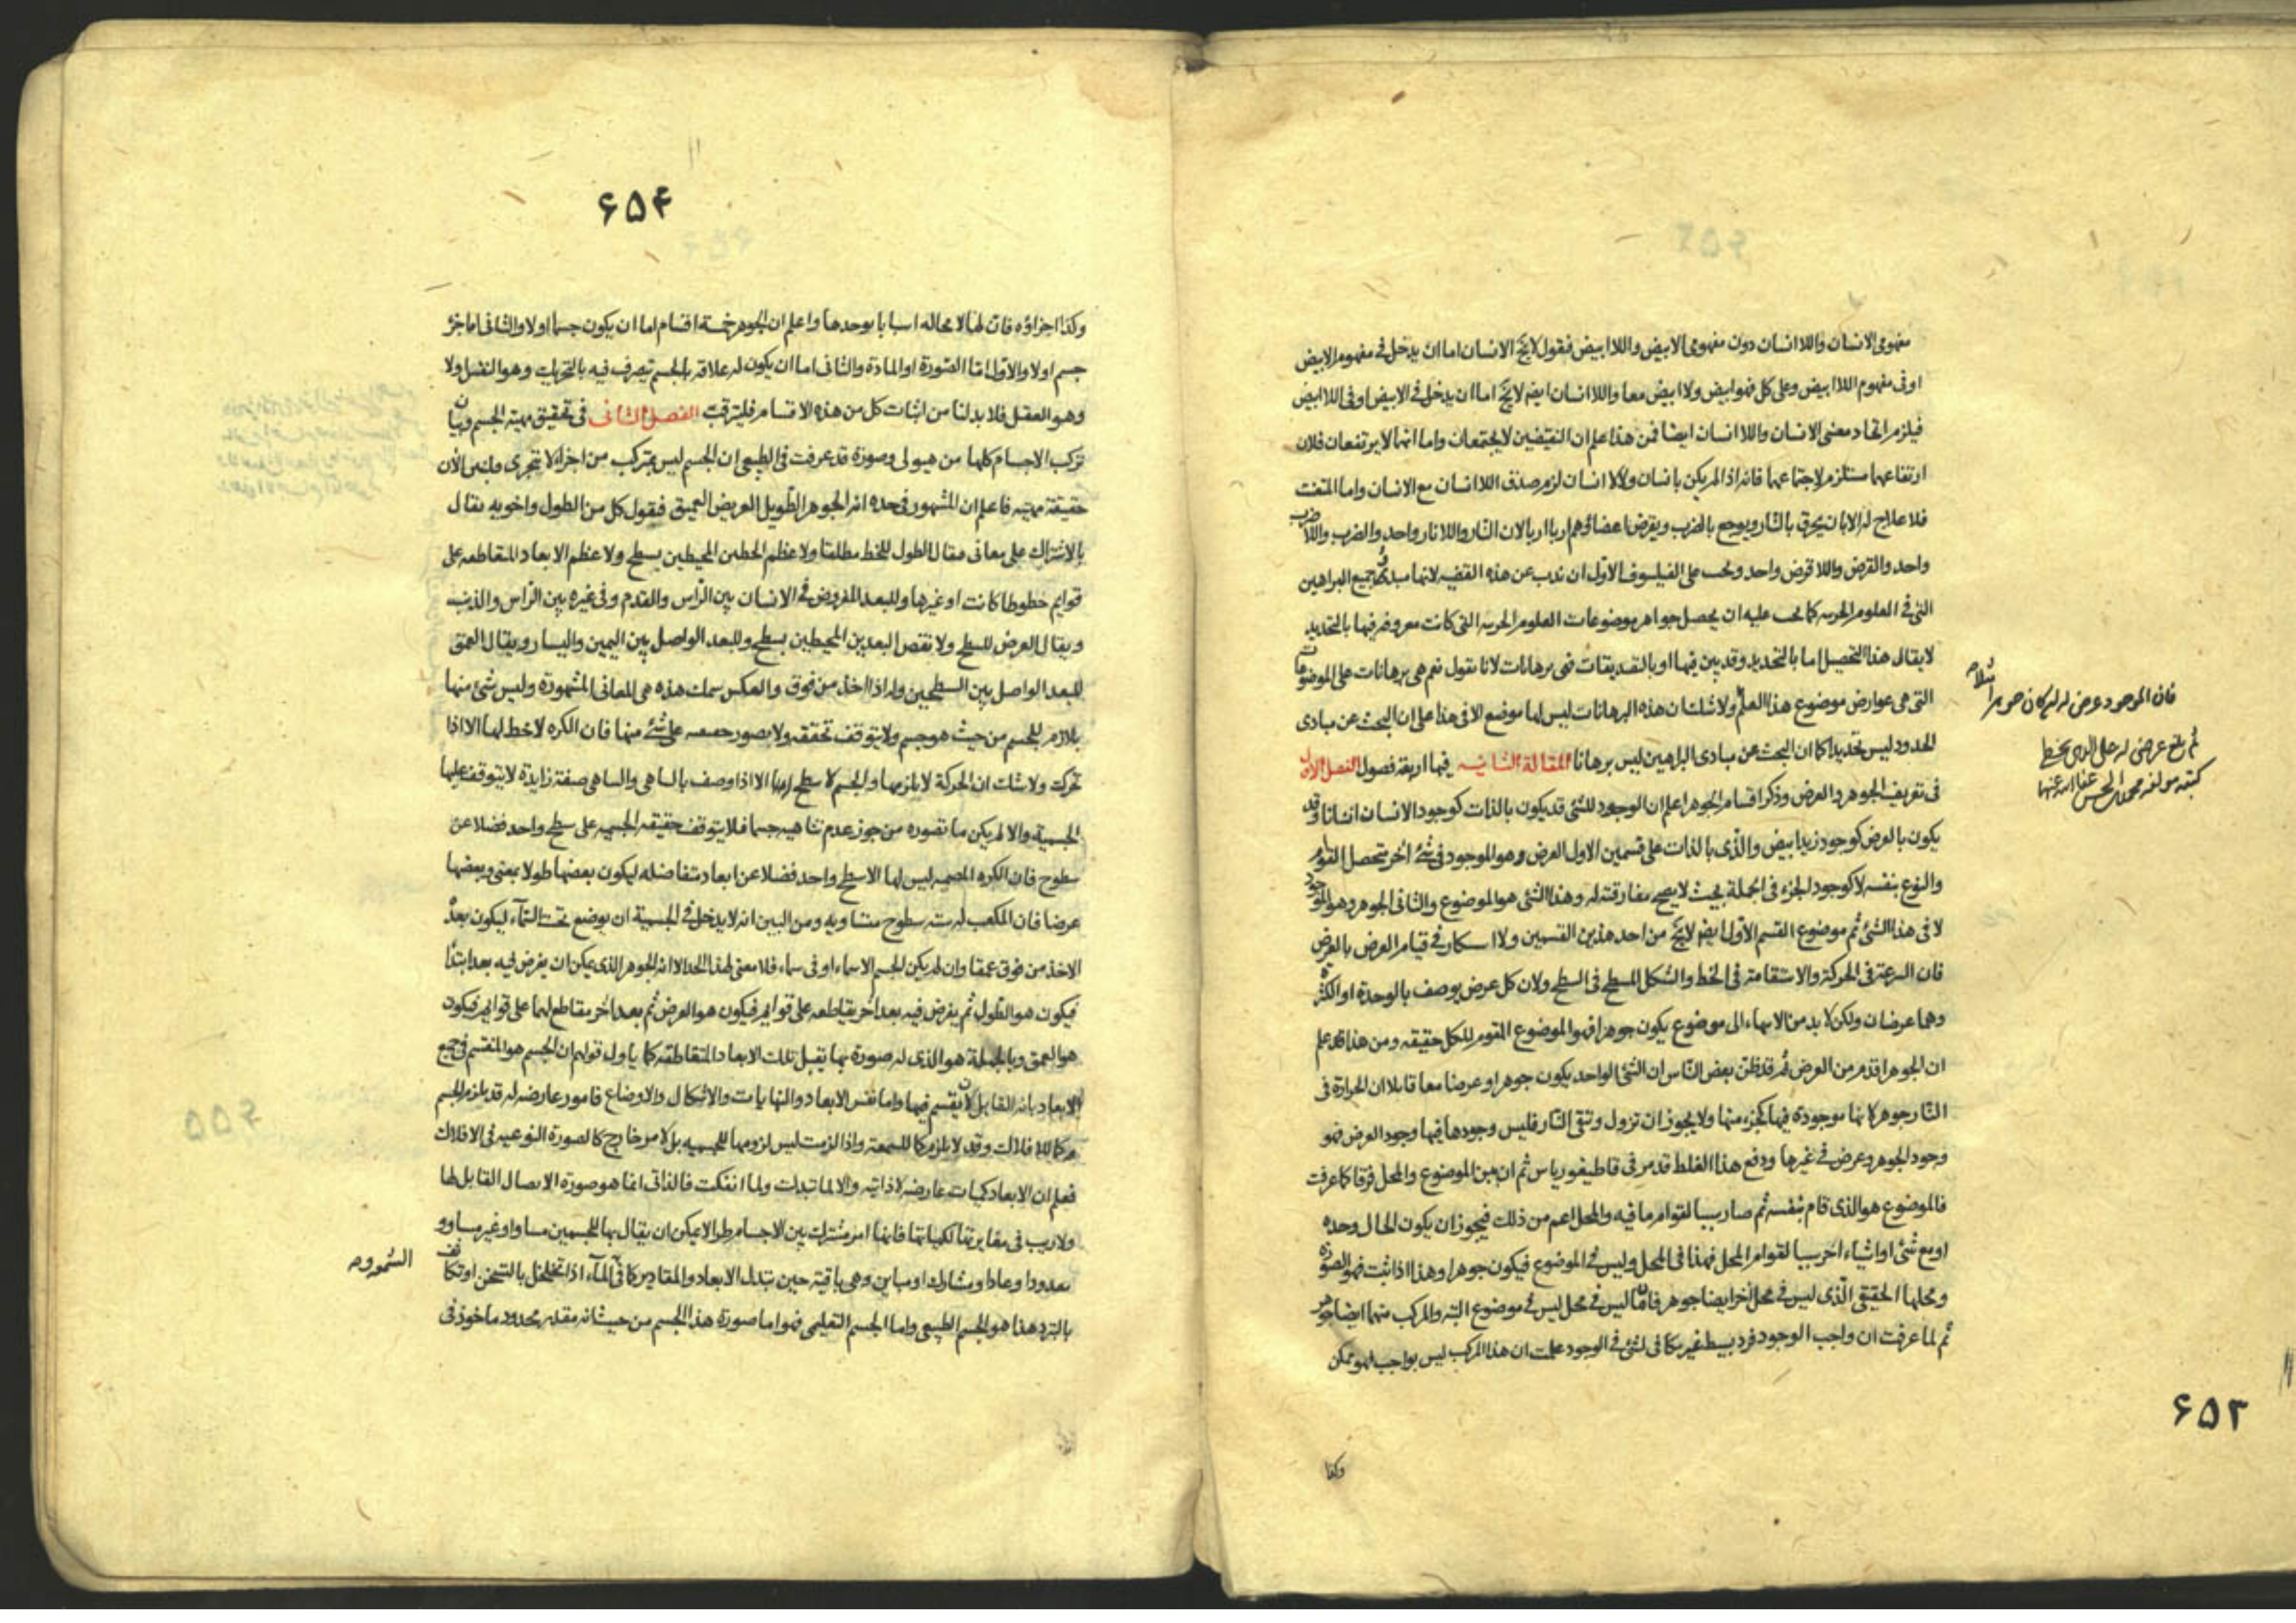 مفهومی الانسان واللا انسان دون مفهومی الابیض واللا ابیض فنقول لایخ الانسان اما ان یدخل فی مفهوم الابیض
او فی مفهوم اللا ابیض وعلی کل فهو ابیض ولا ابیض معا واللا انسان ایضا لایخ اما ان یدخل فی الابیض او فی اللا ابیض
فیلزم اتحاد معنی الانسان واللا انسان ایضا فمن هذا علم ان النقیضین لا یجتمعان واما انهما لا یرتفعان فلان
ارتفاعهما مستلزم لاجتماعهما فانه اذا لم یکن بانسان ولا لا انسان لزم صدق اللا انسان مع الانسان واما المتعنت
فلا علاج له الا بان یحرق بالنار ویوجع بالضرب ویقرض اعضاؤهم اربا اربا لان النار واللا نار واحد والضرب واللا ضرب
واحد والقرض واللا قرض واحد ویجب علی الفیلسوف الاول ان یذب عن هذه القضیه لانها مبدئ جمیع البراهین
التی فی العلوم الجزییه کما یجب علیه ان یحصل جواهر موضوعات العلوم الجزییه التی کانت معروضه فیها بالتحدید
لا یقال هذا التحصیل اما بالتحدید وقد بین فیها او بالتصدیقات فهی برهانات لانا نقول نعم هی برهانات علی الموضوعات
التی هی عوارض موضوع هذا العلم ولا شک ان هذه البرهانات لیس لها موضع الا فی هذا علی ان البحث عن مبادی
الحدود لیس تحدیدا کما ان البحث عن مبادی البراهین لیس برهانا المقالة الثانیه فیها اربعة فصول الفصل الاول
فی تعریف الجوهر والعرض وذکر اقسام الجوهر اعلم ان الوجود للشئ قد یکون بالذات کوجود الانسان انسانا وقد
یکون بالعرض کوجود زید ابیض والذی بالذات علی قسمین الاول العرض وهو الموجود فی شئ اخر متحصل القوام
والنوع بنفسه لا کوجود الجزء فی الجملة بحیث لا یصح مفارقته له وهذا الشئ هو الموضوع والثانی الجوهر وهو الموجود
لا فی هذا الشئ ثم موضوع القسم الاول ایضا لایخ من احد هذین القسمین ولا استنکار فی قیام العرض بالعرض
فان السرعة فی الحرکة والاستقامة فی الخط والشکل المسطح فی السطح ولان کل عرض یوصف بالوحدة او الکثرة
وهما عرضان ولکن لا بد من الانتهاء الی موضوع یکون جوهرا فهو الموضوع المقوم للکل حقیقه ومن هذا قد علم
ان الجوهر اقدم من العرض ثم قد ظن بعض الناس ان الشئ الواحد یکون جوهرا وعرضا معا قایلا ان الحرارة فی
النار جوهر لانها موجودة فیها کجزء منها ولا یجوز ان تزول وتبقی النار فلیس وجودها فیها وجود العرض فهو
وجود الجوهر وعرض فی غیرها ودفع هذا الغلط قد مر فی قاطیغوریاس ثم ان بین الموضوع والمحل فرقا کما عرفت
فالموضوع هو الذی قام بنفسه ثم صار سببا لقوام ما فیه والمحل اعم من ذلک فیجوز ان یکون الحال وحده
او مع شئ او اشیاء اخر سببا لقوام المحل فهذا فی المحل ولیس فی الموضوع فیکون جوهرا وهذا اذا ثبت فهو الصورة
ومحلها الحقیقی الذی لیس فی محل اخر ایضا جوهر فان ما لیس فی محل لیس فی موضوع البته والمرکب منهما ایضا جوهر
ثم لما عرفت ان واجب الوجود فرد بسیط غیر مکافی لشئ فی الوجود علمت ان هذا المرکب لیس بواجب فهو ممکن
وکذا
فان الموجود عرض له لو کان جوهرا
مثلا
ثم بلغ عرضی له علی الذی بخط
کتبه مولفه محمد بن الحسن عفا الله عنهما
۶۵۳
۶۵۴
وکذا اجزاؤه فان لها لا محاله اسبابا یوجدها واعلم ان الجوهر خمسة اقسام اما ان یکون جسما او لا والثانی اما جزء
جسم او لا والاول اما الصورة او المادة والثانی اما ان یکون له علاقه بالجسم یتصرف فیه بالتحریک وهو النفس او لا
وهو العقل فلا بد لنا من اثبات کل من هذه الاقسام فلیترقب الفصل الثانی فی تحقیق مهیة الجسم وبیان
ترکب الاجسام کلها من هیولی وصورة قد عرفت فی الطبیعی ان الجسم لیس بمترکب من اجزاء لا تتجزی ولنبین الان
حقیقة مهیته فاعلم ان المشهور فی حده انه الجوهر الطویل العریض العمیق فنقول کل من الطول واخویه یقال
بالاشتراک علی معانی فقال الطول للخط مطلقا ولاعظم الخطین المحیطین بسطح ولاعظم الابعاد المتقاطعه علی
قوایم خطوطا کانت او غیرها وللبعد المفروض فی الانسان بین الراس والقدم وفی غیره بین الراس والذنب
ویقال العرض للسطح ولانقص البعدین المحیطین بسطح وللبعد الواصل بین الیمین والیسار ویقال العمق
للبعد الواصل بین السطحین وله اذا اخذ من فوق والعکس سمک هذه هی المعانی المشهورة ولیس شئ منها
بلازم للجسم من حیث هو جسم ولا یتوقف تحققه ولا تصور حقیقته علی شئ منها فان الکره لا خط لها الا اذا
تحرکت ولا شک ان الحرکة لا یلزمها والجسم لا سطح له الا اذا وصف بالتناهی والتناهی صفة زایدة لا یتوقف علیها
الجسمیة والا لم یکن ما تصوره من جوز عدم تناهیه جسما فلا یتوقف حقیقه الجسمیه علی سطح واحد فضلا عن
سطوح فان الکره المصمته لیس لها الا سطح واحد فضلا عن ابعاد متفاضله لیکون بعضها طولا بمعنی وبعضها
عرضا فان المکعب له سته سطوح متساویه ومن البین انه لا یدخل فی الجسمیة ان یوضع تحت السماء لیکون بعده
الاخذ من فوق عمقا وان لم یکن الجسم الا سماء او فی سماء فلا معنی لهذا الحد الا انه الجوهر الذی یمکن ان یفرض فیه بعد ابتداء
فیکون هو الطول ثم یفرض فیه بعد اخر یقاطعه علی قوایم فیکون هو العرض ثم بعد اخر مقاطع لهما علی قوایم فیکون
هو العمق وبالجملة هو الذی له صورة بها یقبل تلک الابعاد المتقاطعه کما یاول قولهم ان الجسم هو المنقسم فی جمیع
الابعاد بانه القابل لان ینقسم فیها واما نفس الابعاد والنهایات والاشکال والاوضاع فامور عارضه له قد یلزم الجسم
کما للافلاک وقد لا یلزم کما للشمعة واذا لزمت لیس لزومها للجسمیه بل لامر خارج کالصورة النوعیه فی الافلاک
فعلم ان الابعاد کمیات عارضه لا ذاتیه والا لما تبدلت ولما انفکت فالذاتی انما هو صورة الاتصال القابل لها
ولا ریب فی مغایرتها لکمیاتها فانها امر مشترک بین الاجسام طرا لا یمکن ان یقال بها للجسمین مساو او غیر مساو و
معدودا وعادا ومشارک او مباین وهی باقیة حین تبدل الابعاد والمقادیر کما فی الماء اذا تخلخل بالتسخن او تکاثف
بالتبرد هذا هو الجسم الطبیعی واما الجسم التعلیمی فهو اما صورة هذا الجسم من حیث انه مقدر محدود ماخوذ فی